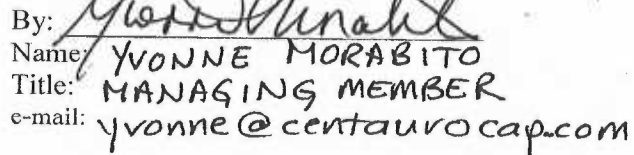 By: Yvonne Morabito
Name: YVONNE MORABITO
Title: MANAGING MEMBER
e-mail: yvonne@centaurocap.com